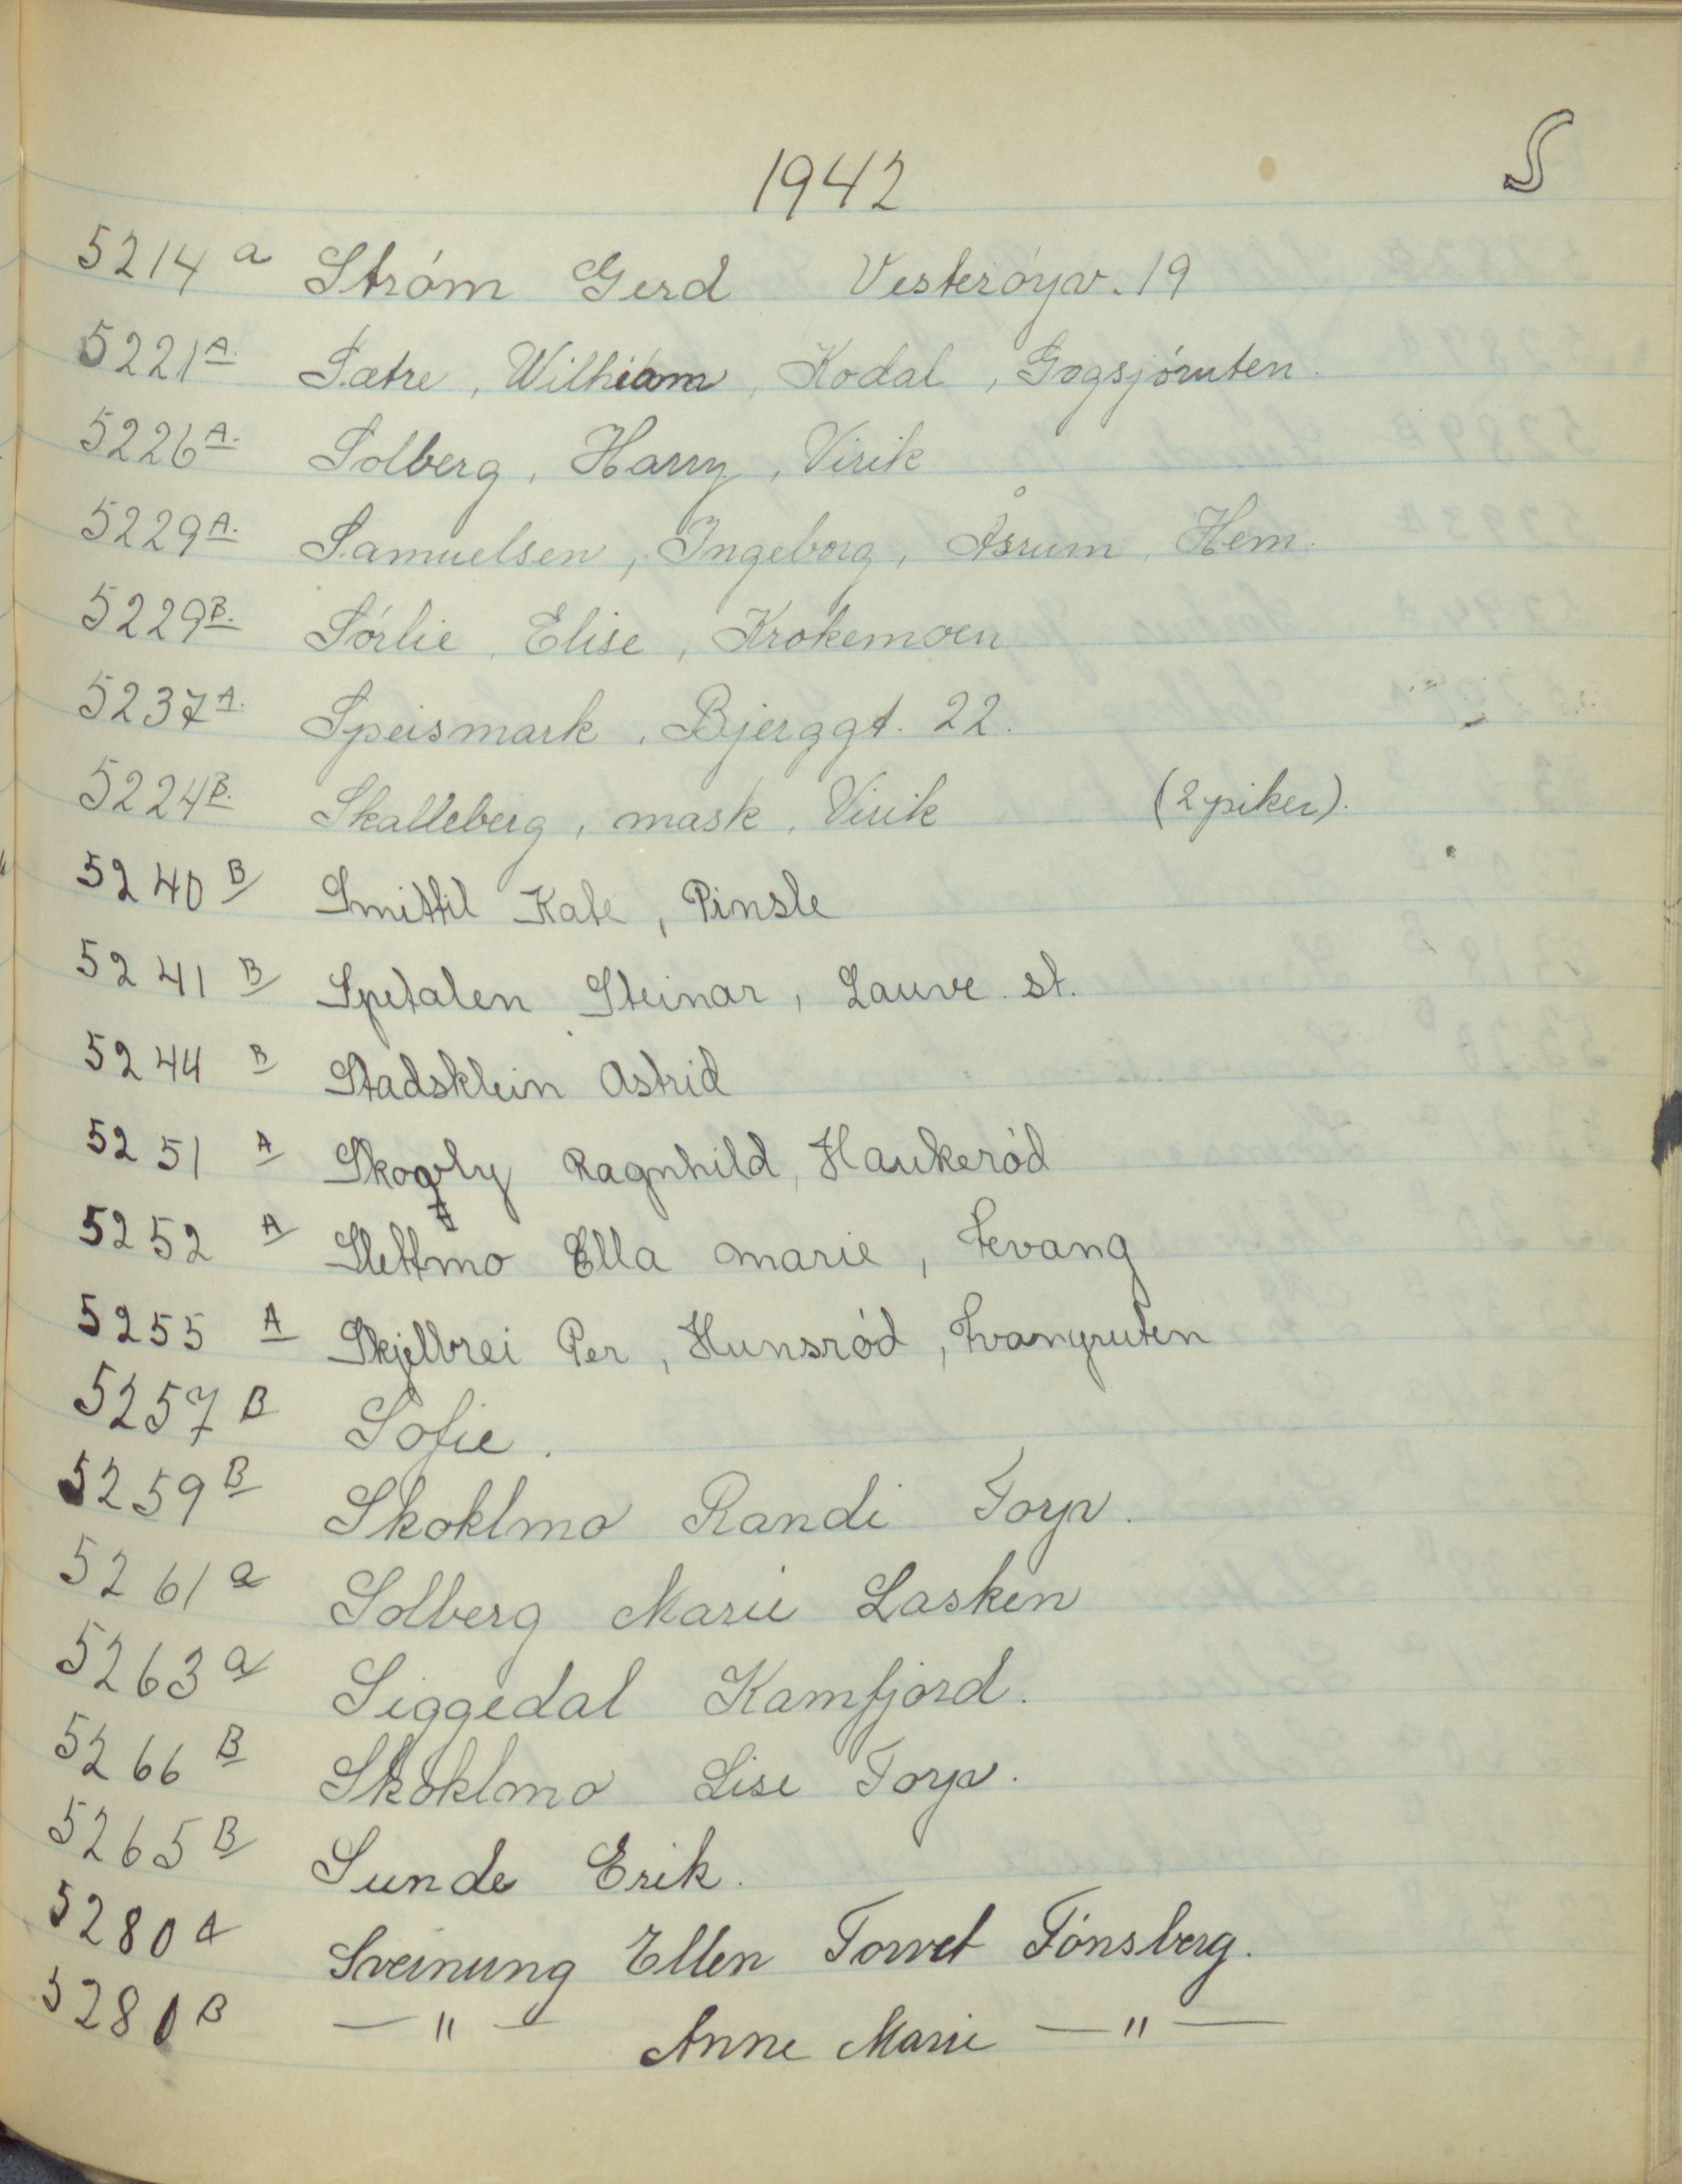 S
1942
5214 a Ström Gerd Vesteröyv. 19
5221 A. Sætre, William, Kodal, Gogsjöruten.
5226 A. Solberg, Harry, Virik
5229 A. Samuelsen, Ingeborg, Åsrum, Hem.
5229 B. Sörlie, Elise, Krokemoen
5237 A. Speismark, Bjerggt. 22.
5224 B. Skalleberg, mask, Virik (2 piker).
5240 B Smittil Kate, Pinsle
5241 B Spetalen Steinar, Lauve st.
5244 B Stadsklein Astrid
5251 A Skogly Ragnhild, Haukeröd
5252 A Slettmo Ella Marie, Fevang
5255 A Skjelbrei Per, Hunsröd,
5257 B Sofie.
5259 B Skoklmo Randi Torp.
5261 a Solberg Marie Lasken
5263 a Siggedal Kamfjord.
5266 B Skoklmo Lise Torp.
5265 B Sunde Erik.
5280 A Sveinung Ellen Torvet Tönsberg.
5280 B — " — Anne Marie — " —